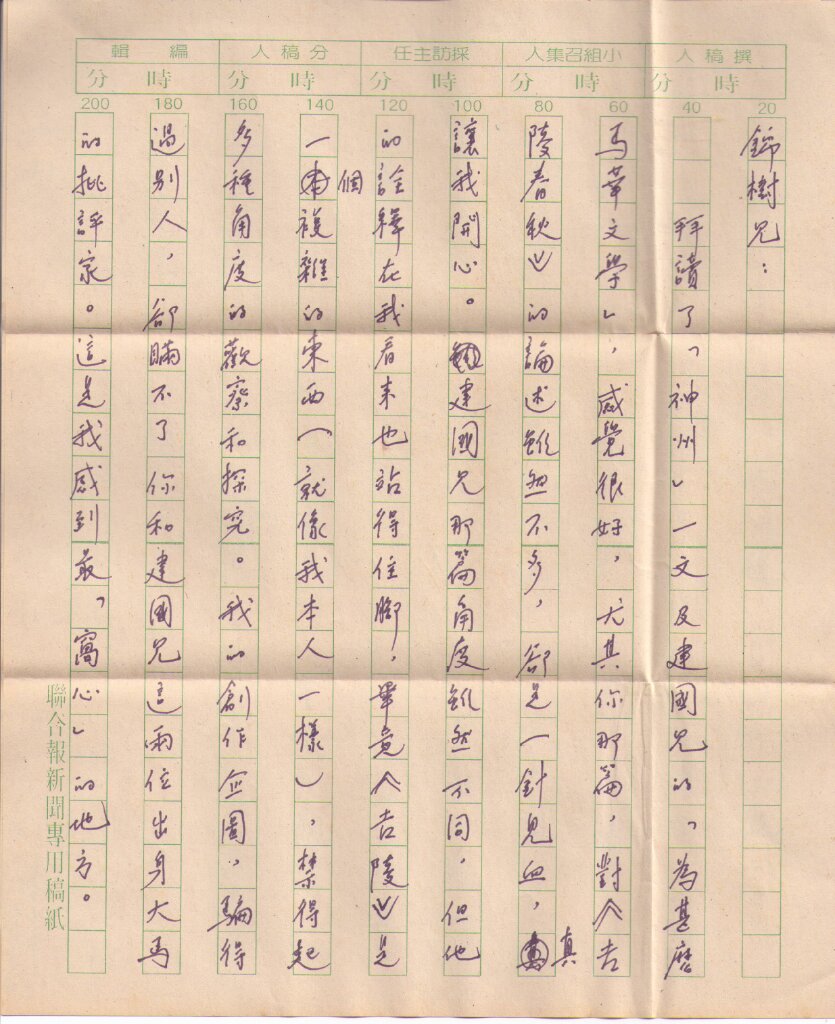 撰稿人 小組召集人 採訪主任 分稿人 編輯
時 分 時 分 時 分 時 分 時 分
20 40 60 80 100 120 140 160 180 200
錦樹兄：
拜讀了「神州」一文及建國兄的「為甚麼
馬華文學」，感覺很好，尤其你那篇，對《吉
陵春秋》的論述雖然不多，卻是一針見血，真
讓我開心。建國兄那篇角度雖然不同，但他
的詮釋在我看來也站得住腳，畢竟《吉陵》是
一個複雜的東西（就像我本人一樣），禁得起
多種角度的觀察和探究。我的創作企圖，騙得
過別人，卻瞞不了你和建國兄這兩位出身大馬
的批評家。這是我感到最「窩心」的地方。
聯合報新聞專用稿紙